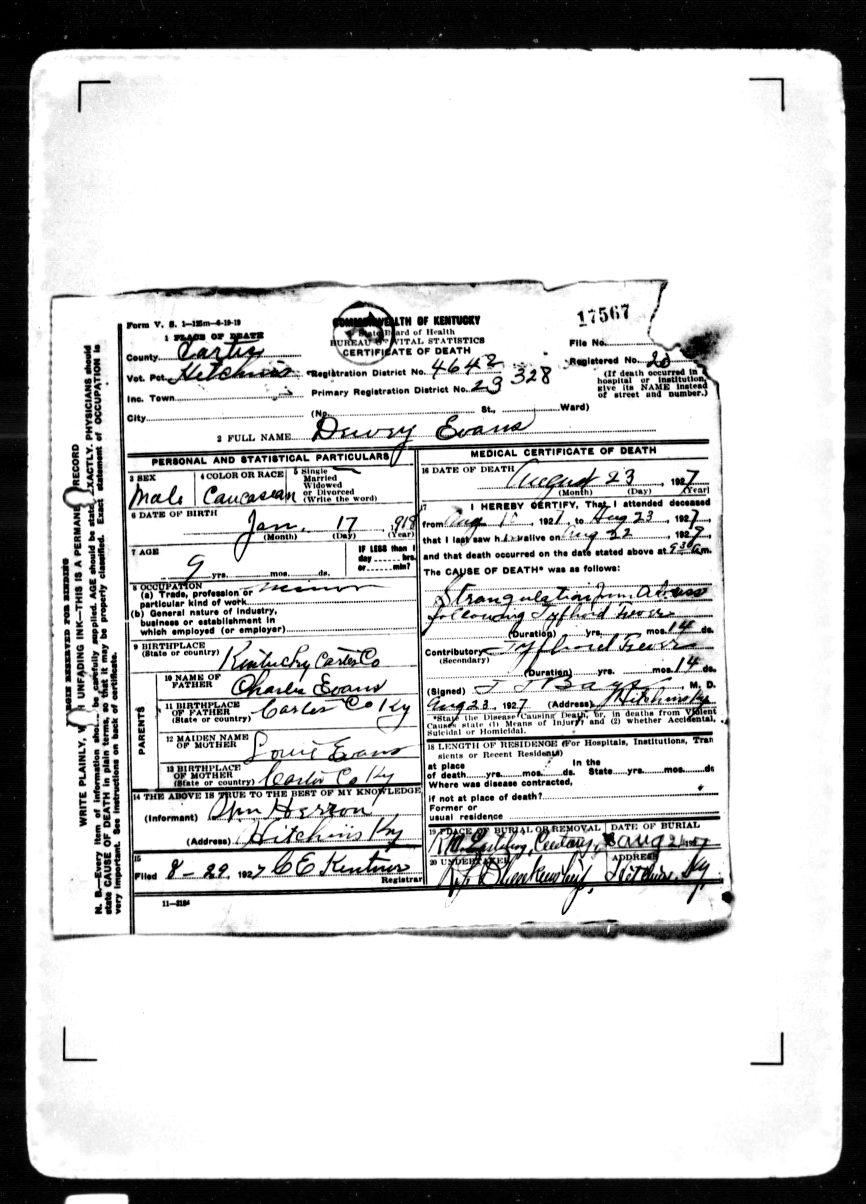 Form V. S. 1-15m-4-19-19
COMMONWEALTH OF KENTUCKY
State Board of Health
BUREAU OF VITAL STATISTICS
CERTIFICATE OF DEATH
17567
File No.
Registered No. 20
(If death occurred in a hospital or institution, give its NAME instead of street and number.)
1 PLACE OF DEATH
County Carter
Vot. Pct. Hitchins Registration District No. 4642
Inc. Town Primary Registration District No. 23 328
City (No. St., Ward)
2 FULL NAME Dewey Evans
PERSONAL AND STATISTICAL PARTICULARS
3 SEX
Male
4 COLOR OR RACE
Caucasean
5 Single
Married
Widowed
or Divorced
(Write the word)
6 DATE OF BIRTH
Jan. 17 , 918
(Month) (Day) (Year)
7 AGE
9 yrs. mos. ds.
IF LESS than 1
day hrs.
or min?
8 OCCUPATION
(a) Trade, profession or
particular kind of work minor
(b) General nature of industry,
business or establishment in
which employed (or employer)
9 BIRTHPLACE
(State or country) Kentucky Carter Co
PARENTS
10 NAME OF
FATHER Charlie Evans
11 BIRTHPLACE
OF FATHER
(State or country) Carter Co Ky
12 MAIDEN NAME
OF MOTHER Evans
13 BIRTHPLACE
OF MOTHER
(State or country) Carter Co Ky
14 THE ABOVE IS TRUE TO THE BEST OF MY KNOWLEDGE
(Informant) Herron
(Address) Hitchins Ky
15
Filed 8-29, 1927 C E
Registrar
11-3184
MEDICAL CERTIFICATE OF DEATH
16 DATE OF DEATH
August 23 , 1927
(Month) (Day) (Year)
17 I HEREBY CERTIFY, That I attended deceased
from Aug , 1927, to Aug 23, 1927,
that I last saw h alive on Aug 22, 1927,
and that death occurred on the date stated above at 9 30 a.m.
The CAUSE OF DEATH* was as follows:
Strangulation from
following Tyfhoid Fever
(Duration) yrs. mos. 14 ds.
Contributory Tyfhoid Fever
(Secondary)
(Duration) yrs. mos. 14 ds.
(Signed) M. D.
Aug 23, 1927 (Address) Hitchins Ky
*State the Disease Causing Death, or, in deaths from Violent
Causes state (1) Means of Injury; and (2) whether Accidental,
Suicidal or Homicidal.
18 LENGTH OF RESIDENCE (For Hospitals, Institutions, Tran
sients or Recent Residents)
at place In the
of death yrs. mos. ds. State yrs. mos. ds
Where was disease contracted,
if not at place of death?
Former or
usual residence
19 PLACE OF BURIAL OR REMOVAL DATE OF BURIAL
20 UNDERTAKER ADDRESS
Hitchins, Ky.
MARGIN RESERVED FOR BINDING
WRITE PLAINLY, WITH UNFADING INK—THIS IS A PERMANENT RECORD
N. B.—Every item of information should be carefully supplied. AGE should be stated EXACTLY. PHYSICIANS should
state CAUSE OF DEATH in plain terms, so that it may be properly classified. Exact statement of OCCUPATION is
very important. See instructions on back of certificate.